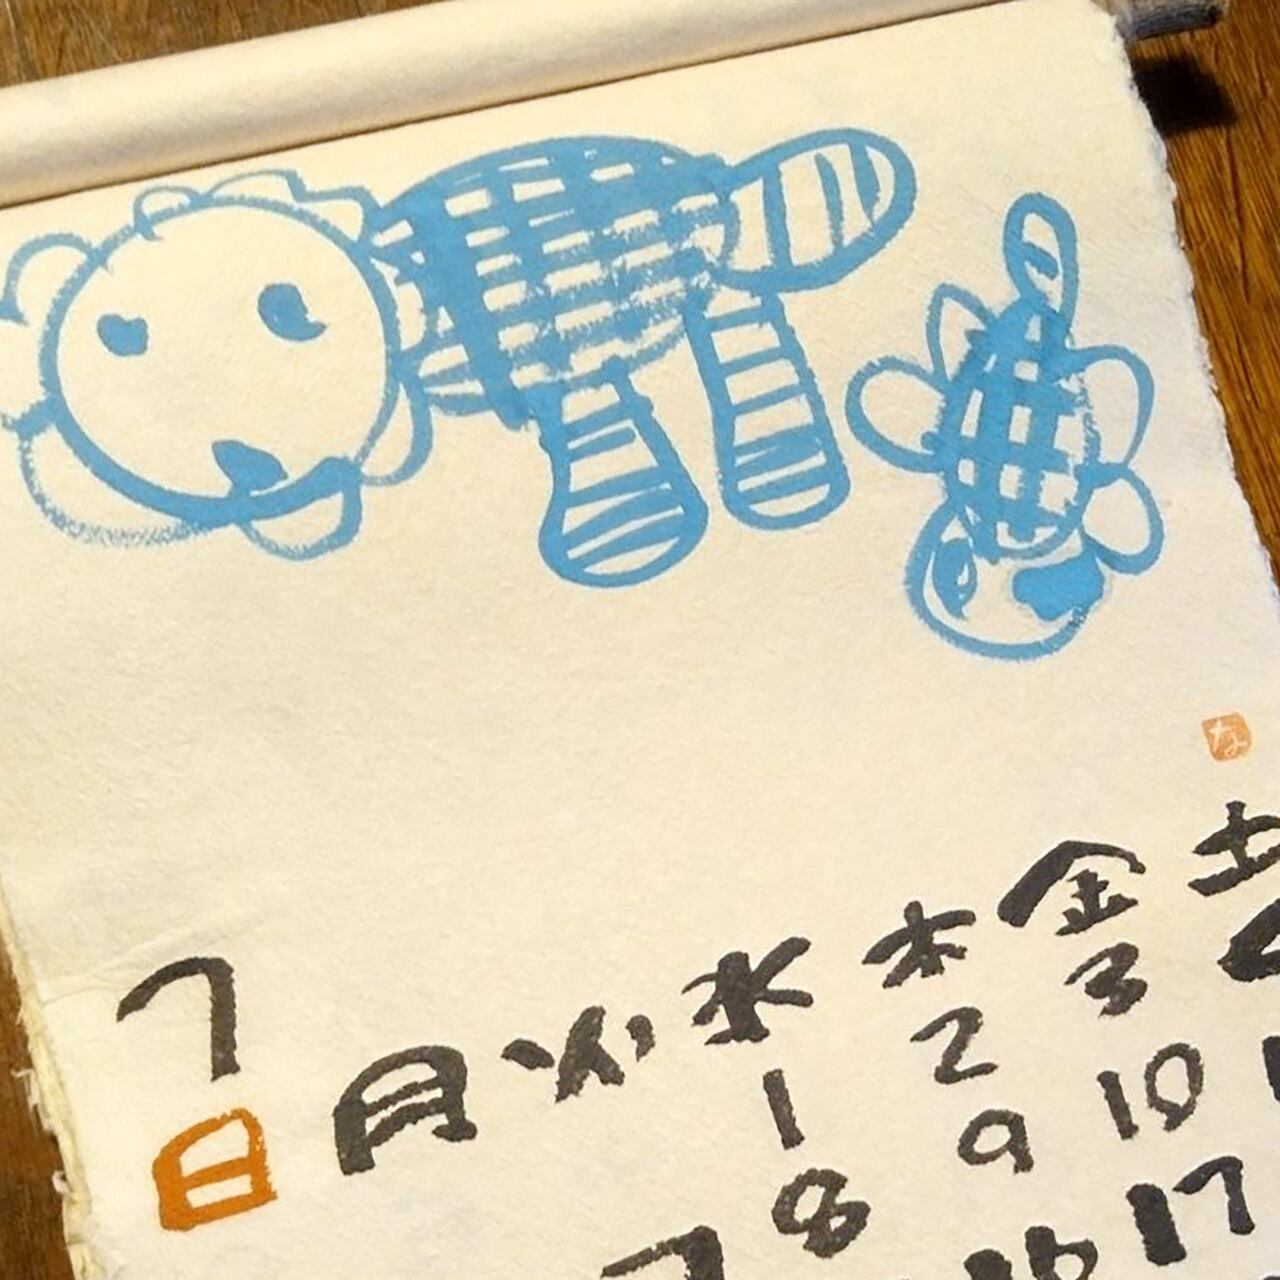 な
7
日 月 火 水 木 金 土
1 2 3
7 8 9 10
16 17